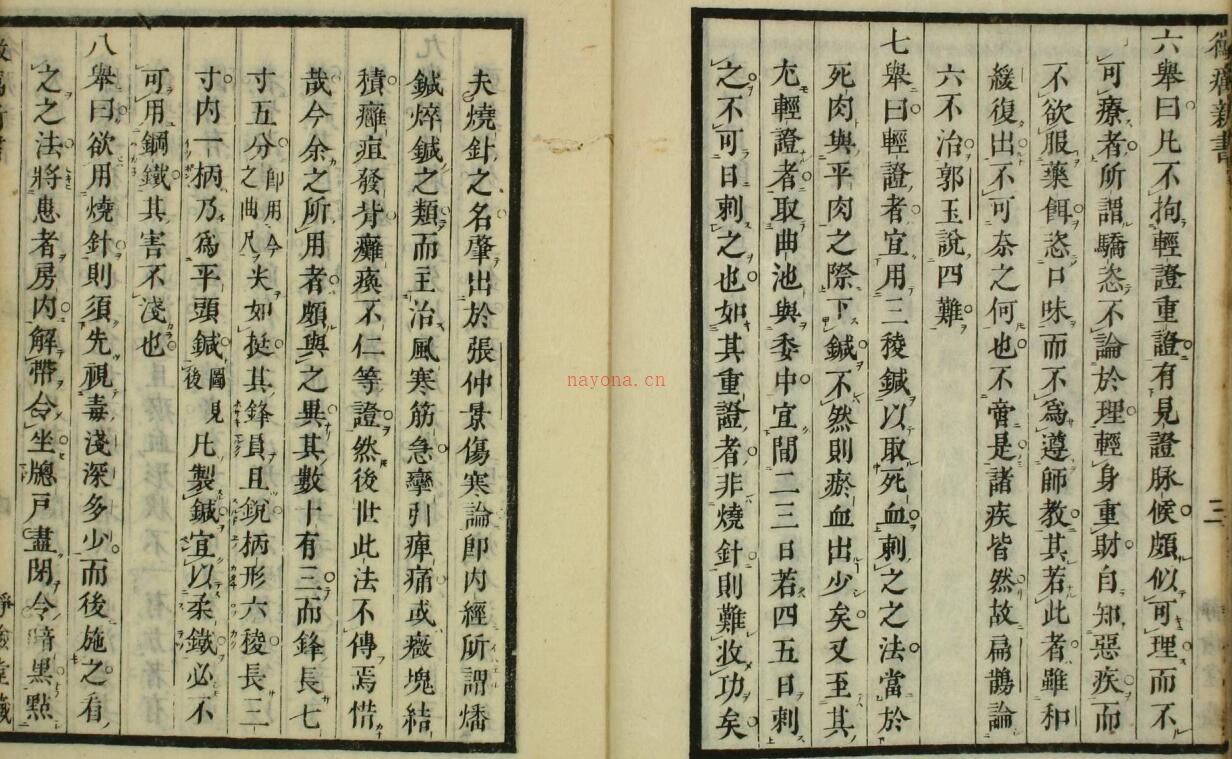 黴癘新書
三
六舉曰凡不拘輕證重證有見證脉候頗似可理而不
可療者所謂驕恣不論於理輕身重財自知惡疾而
不欲服藥餌恣口味而不為遵師教其若此者雖和
緩復出不可奈之何也不啻是諸疾皆然故扁鵲論
六不治郭玉說四難
七舉曰輕證者宜用三稜鍼以取死血刺之之法當於
死肉與平肉之際下鍼不然則瘀血出少矣又至其
尤輕證者取曲池與委中宜間二三日若四五日刺
之不可日刺之也如其重證者非燒針則難收功矣
夫燒針之名肇出於張仲景傷寒論即內經所謂燔
鍼焠鍼之類而主治風寒筋急攣引痺痛或癥塊結
積癰疽發背癱瘓不仁等證然後世此法不傳焉惜
哉今余之所用者頗與之異其數十有三而鋒長七
寸五分即用今之曲尺夫如挺其鋒員且銳柄形六稜長二
寸內一柄乃為平頭鍼圖見後凡製鍼宜以柔鐵必不
可用鋼鐵其害不淺也
八舉曰欲用燒針則須先視毒淺深多少而後施之看
之之法將患者房內解帶令坐牕戸盡閉令暗黑點
nayona.cn